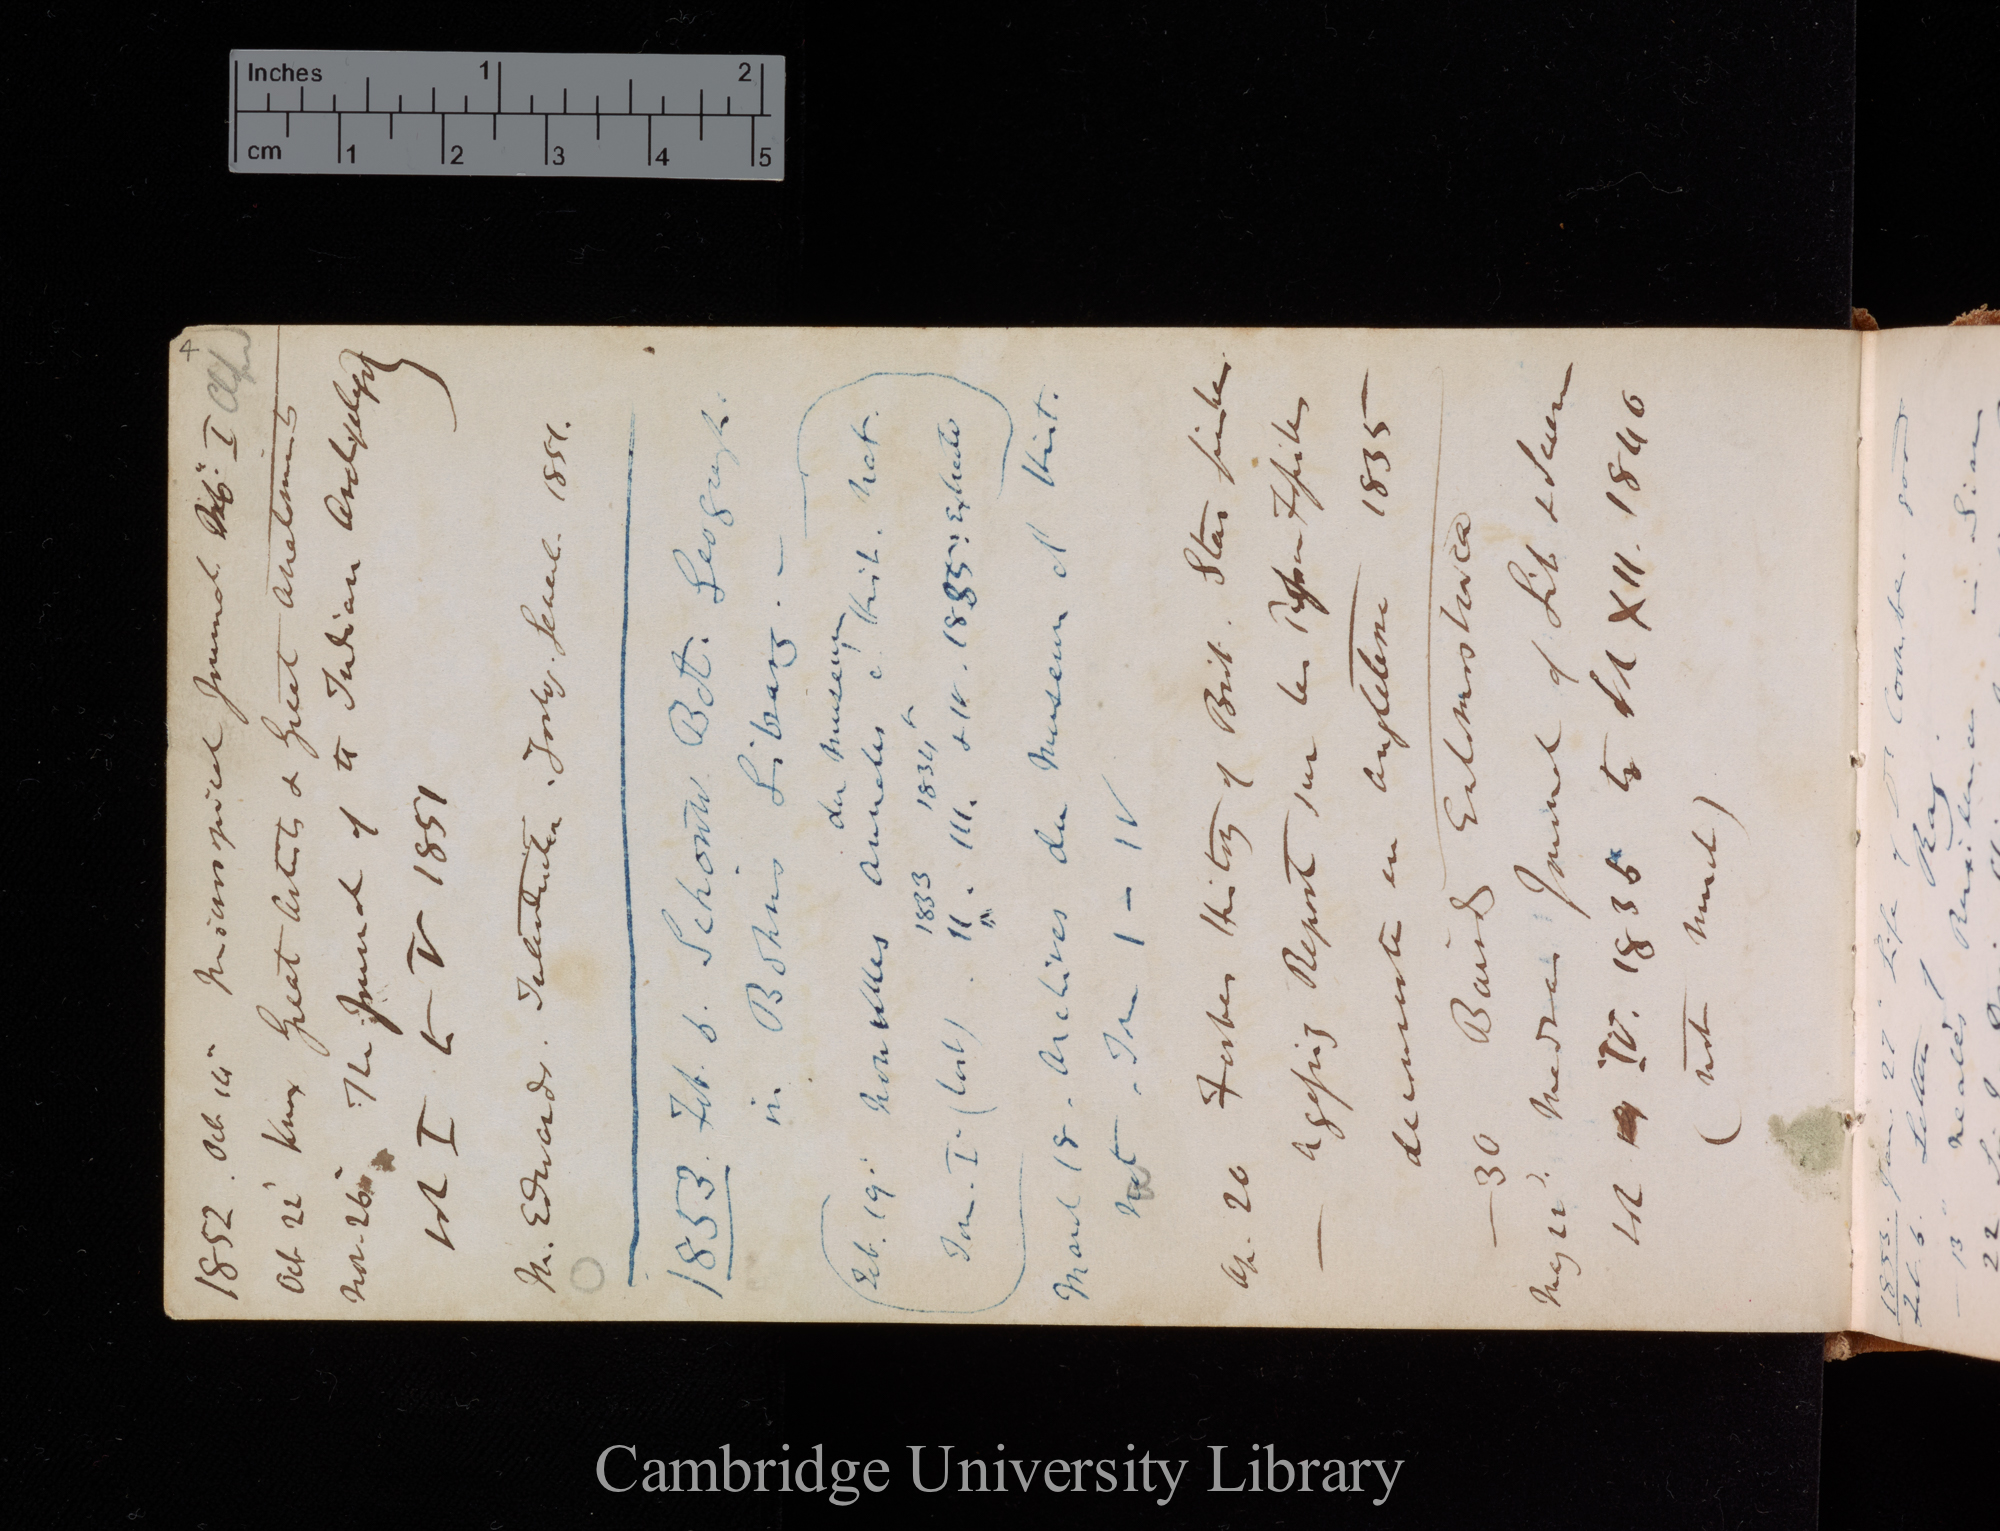 Inches 1 2
cm 1 2 3 4 5
4
1852. Oct. 14" Microscopical Journal No. I
Oct 22 Knox Great Artists & Great Anatomists
Nov. 26" The Journal of the Indian Archipelago
Vol I to V 1851
M. Edwards. Introduction. Zoolog. Gener. 1851.
1853. Feb. 6. Schouw. Bot. Geograph.
in Bohns Library. —
du Museum
Feb. 19" Nouvelles Annales d'Hist. Nat.
1833 1834
Tom. I. (lost). II. III. & IV. 1835: Extracts
March 18 - Archives du Museum d'Hist.
Nat - Tom I - IV
Ap. 20 Forbes History of Brit. Star fishes
— Agassiz Report sur les Poissons Fossiles
decouverts en Angleterre 1835
— 30 Baird Entomostraca
May 22. Madras Journal of Lit & Scien
Vol IV. 1836 to Vol XII. 1840
(not much)
1853. Jan. 27" Life of
Feb. 6. Letters of Ray.
— 13" Neale's Residence in Siam
22
Cambridge University Library